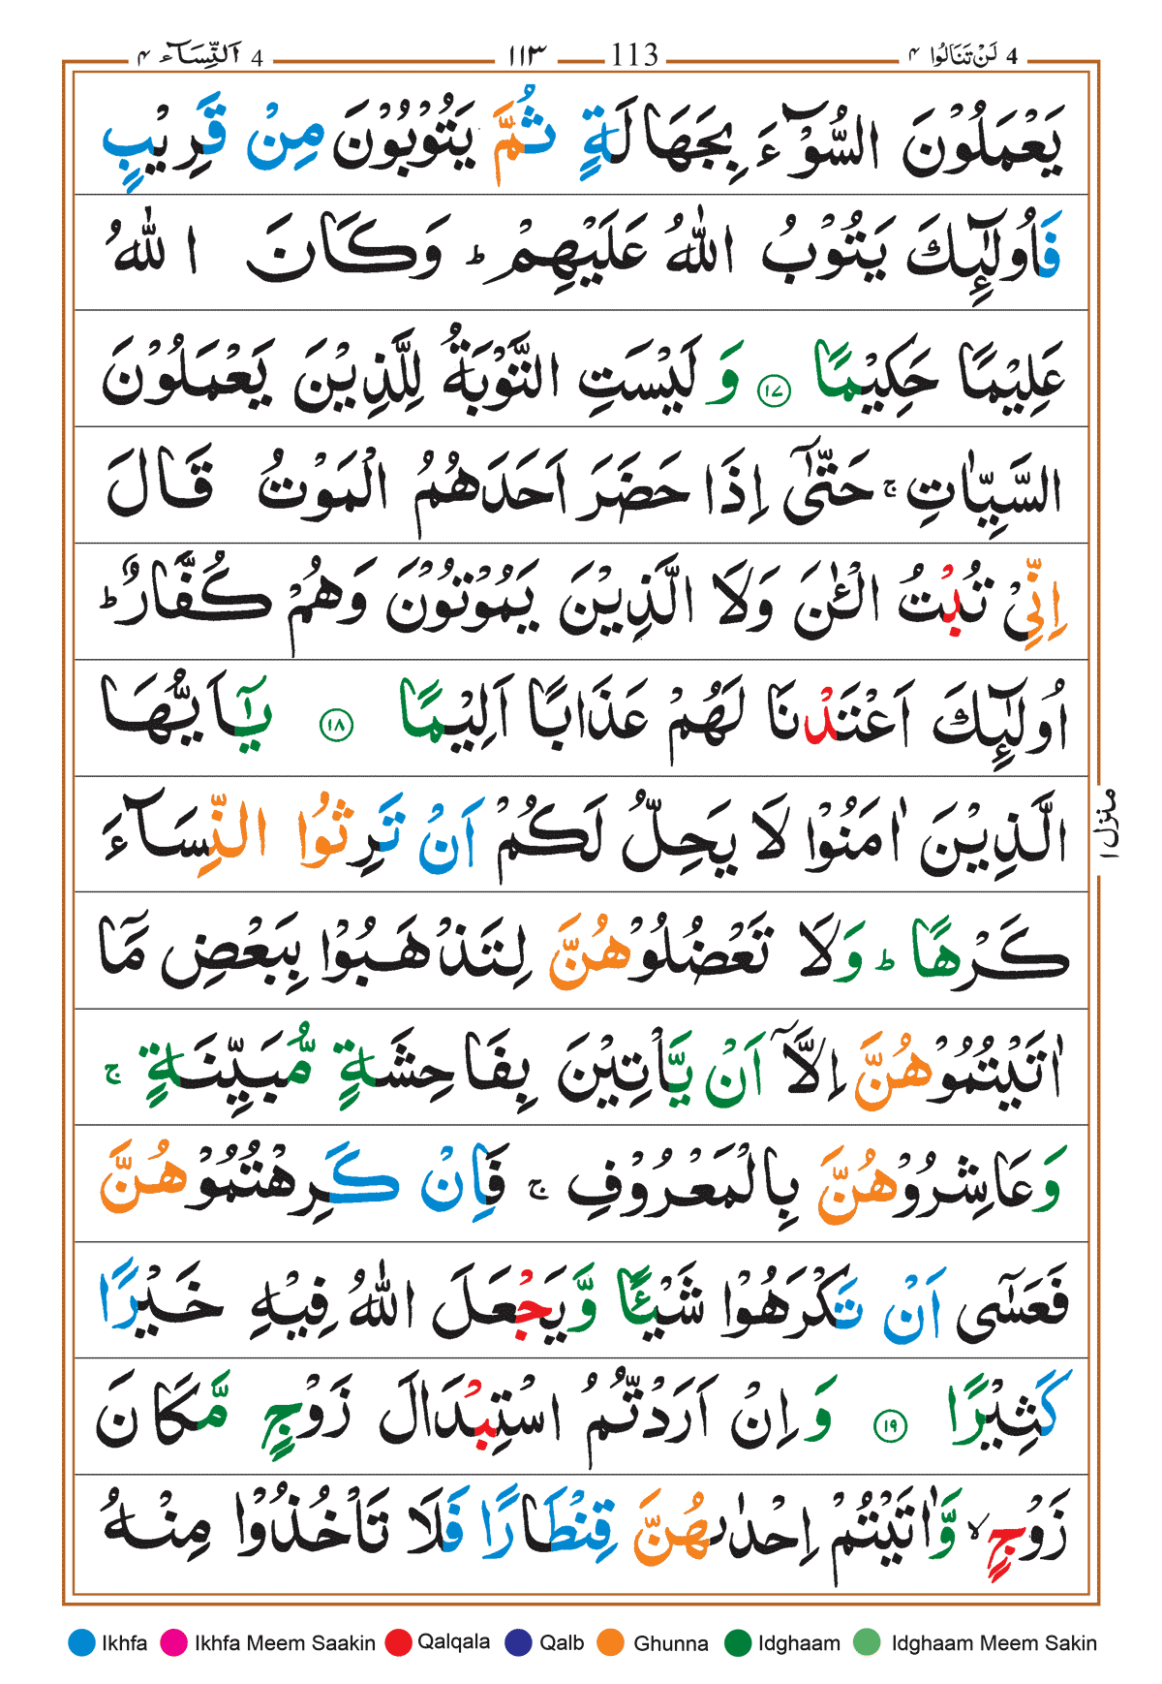 4 لَنْ تَنَالُوا ۴ 113 ١١٣ 4 اَلنِّسَآء ۴
يَعْمَلُوْنَ السُّوْٓءَ بِجَهَالَةٍ ثُمَّ يَتُوْبُوْنَ مِنْ قَرِيْبٍ
فَاُولٰٓئِكَ يَتُوْبُ اللّٰهُ عَلَيْهِمْ ؕ وَكَانَ اللّٰهُ
عَلِيْمًا حَكِيْمًا ١٧ وَلَيْسَتِ التَّوْبَةُ لِلَّذِيْنَ يَعْمَلُوْنَ
السَّيِّاٰتِ ۚ حَتّٰۤى اِذَا حَضَرَ اَحَدَهُمُ الْمَوْتُ قَالَ
اِنِّىْ تُبْتُ الْـٰٔنَ وَلَا الَّذِيْنَ يَمُوْتُوْنَ وَهُمْ كُفَّارٌ ؕ
اُولٰٓئِكَ اَعْتَدْنَا لَهُمْ عَذَابًا اَلِيْمًا ١٨ يٰۤاَيُّهَا
الَّذِيْنَ اٰمَنُوْا لَا يَحِلُّ لَكُمْ اَنْ تَرِثُوا النِّسَآءَ
كَرْهًا ؕ وَلَا تَعْضُلُوْهُنَّ لِتَذْهَبُوْا بِبَعْضِ مَاۤ
اٰتَيْتُمُوْهُنَّ اِلَّاۤ اَنْ يَّاْتِيْنَ بِفَاحِشَةٍ مُّبَيِّنَةٍ ۚ
وَعَاشِرُوْهُنَّ بِالْمَعْرُوْفِ ۚ فَاِنْ كَرِهْتُمُوْهُنَّ
فَعَسٰۤى اَنْ تَكْرَهُوْا شَيْـًٔا وَّيَجْعَلَ اللّٰهُ فِيْهِ خَيْرًا
كَثِيْرًا ١٩ وَاِنْ اَرَدْتُّمُ اسْتِبْدَالَ زَوْجٍ مَّكَانَ
زَوْجٍ ۙ وَّاٰتَيْتُمْ اِحْدٰىهُنَّ قِنْطَارًا فَلَا تَاْخُذُوْا مِنْهُ
منزل ١
Ikhfa Ikhfa Meem Saakin Qalqala Qalb Ghunna Idghaam Idghaam Meem Sakin